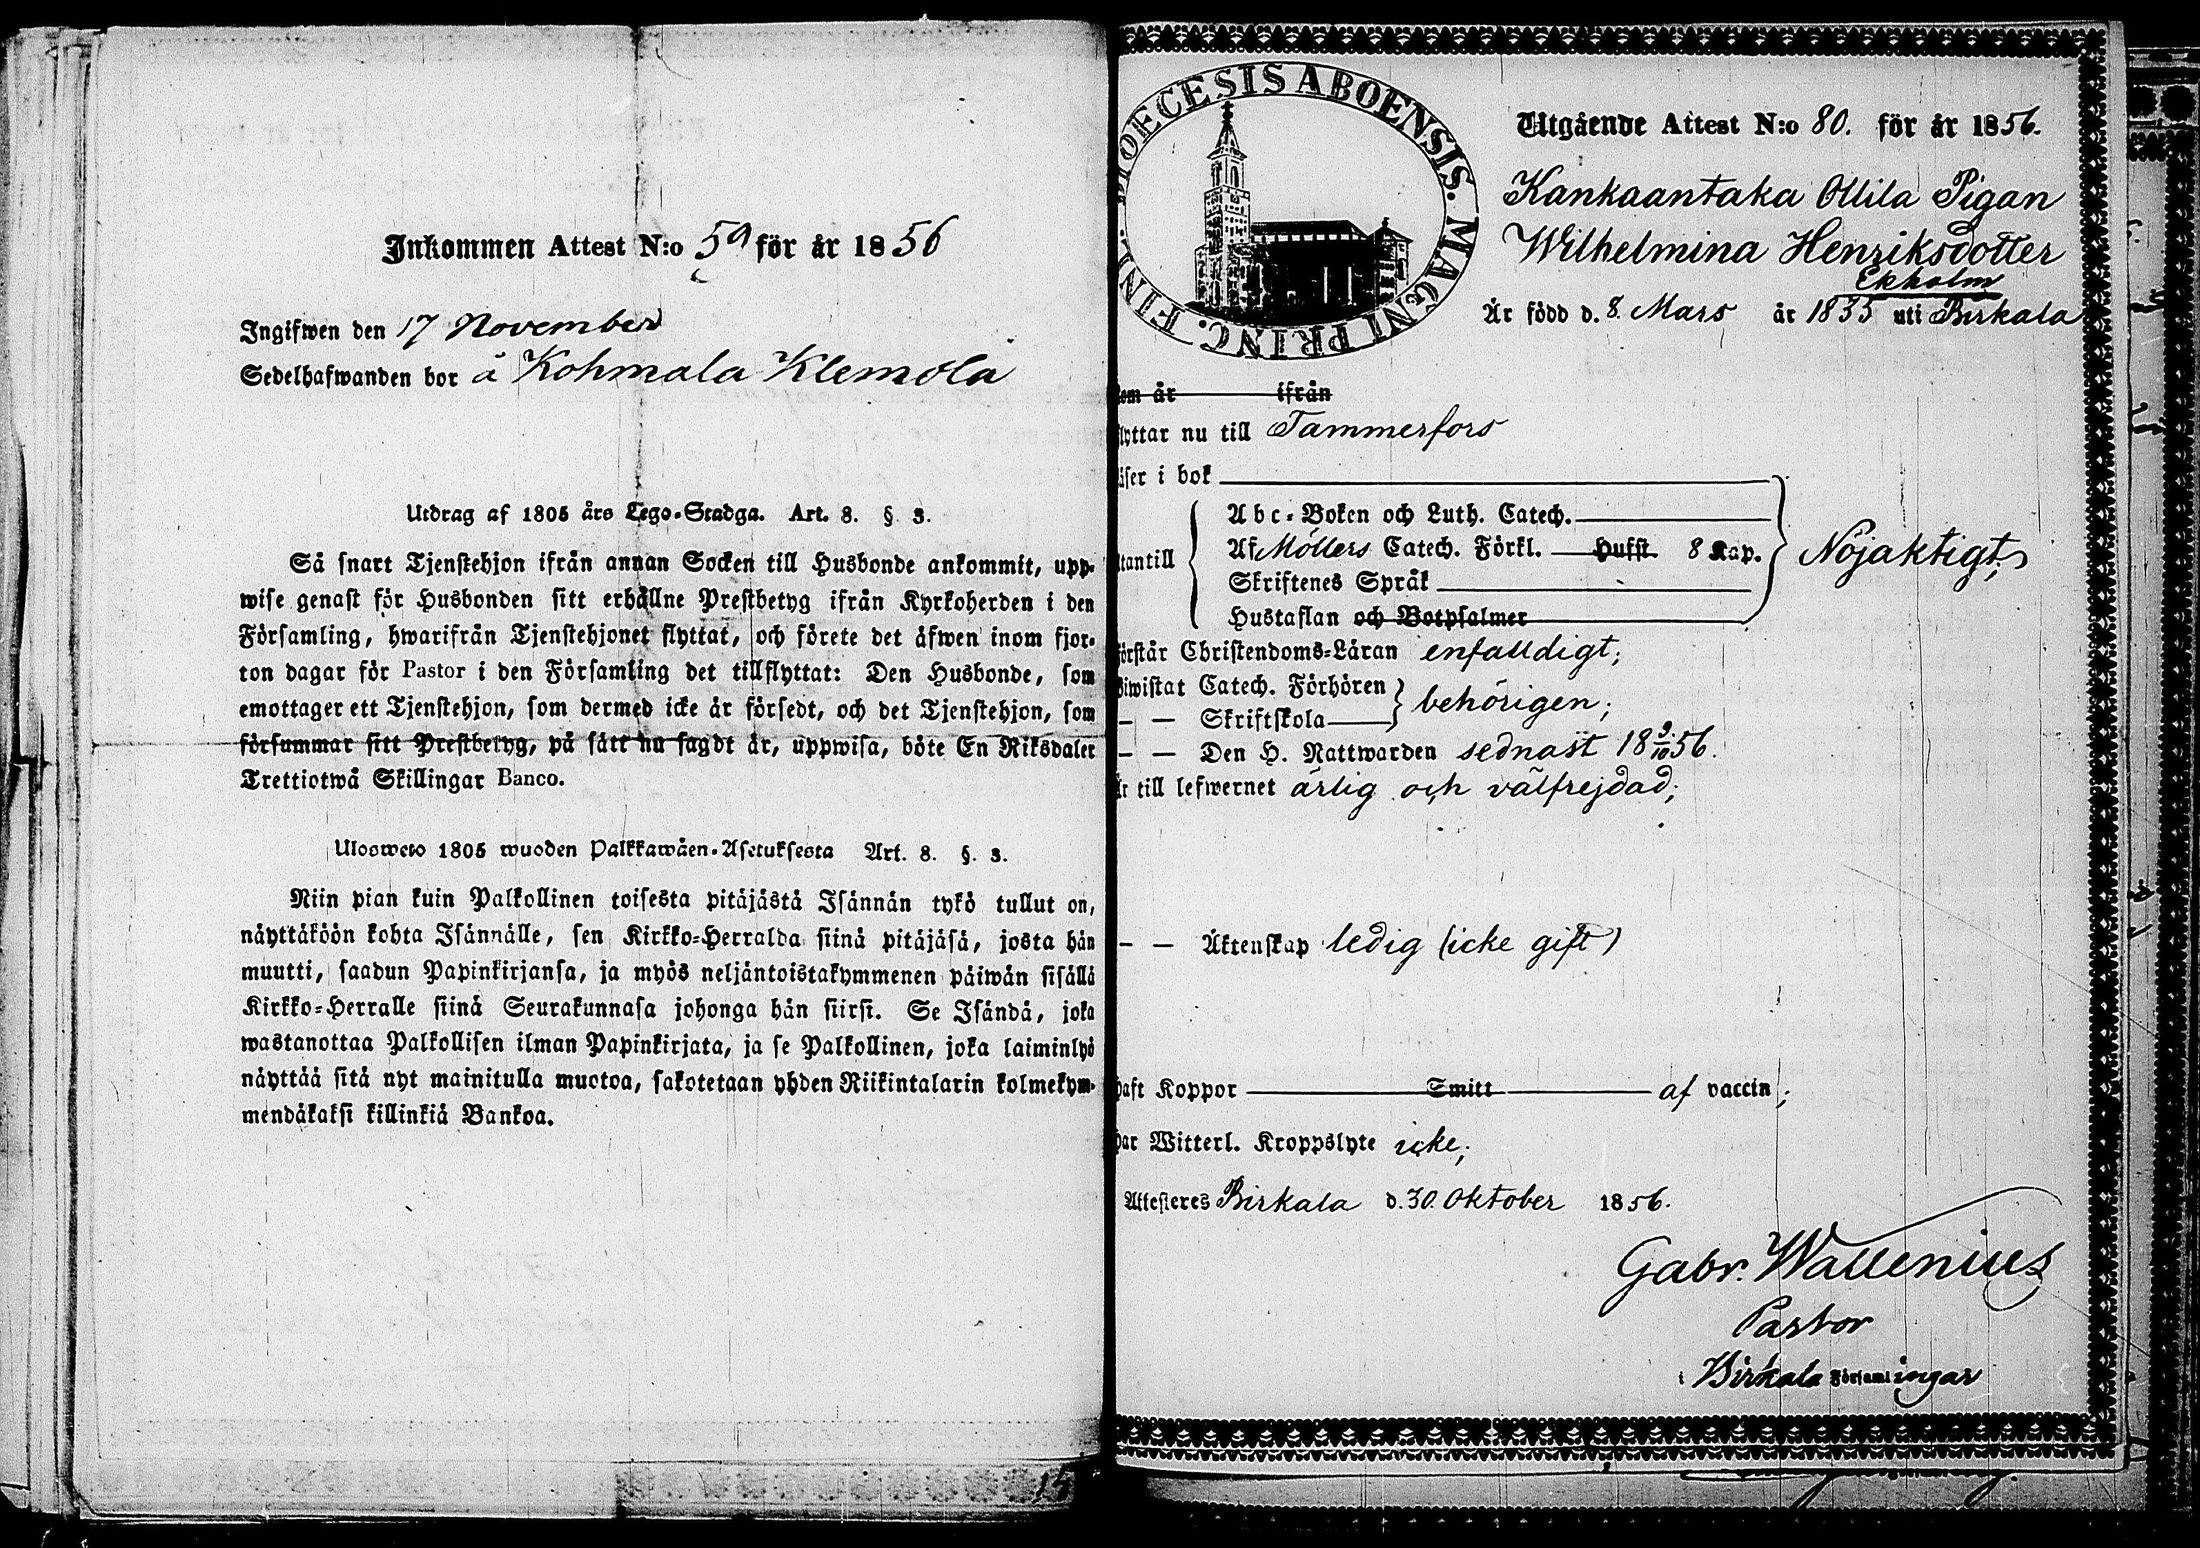 Inkommen Attest N:o 59 för år 1856
Ingifwen den 17 November
Sedelhafwanden bor å Kohmala Klemola
Utdrag af 1805 års Lego-Stadga. Art. 8. § 3.
Så snart Tjenstehjon ifrån annan Socken till Husbonde ankommit, upp-
wise genast för Husbonden sitt erhållne Prestbetyg ifrån Kyrkoherden i den
Församling, hwarifrån Tjenstehjonet flyttat, och förete det äfwen inom fjor-
ton dagar för Pastor i den Församling det tillflyttat: Den Husbonde, som
emottager ett Tjenstehjon, som dermed icke är försedt, och det Tjenstehjon, som
försummar sitt Prestbetyg, på sätt nu sagdt är, uppwisa, böte En Riksdaler
Trettiotwå Skillingar Banco.
Ulosweto 1805 wuoden Palkkawäen-Asetuksesta Art. 8. §. 3.
Niin pian kuin Palkollinen toisesta pitäjästä Isännän tykö tullut on,
näyttäköön kohta Isännälle, sen Kirkko-Herralda siinä pitäjäsä, josta hän
muutti, saadun Papinkirjansa, ja myös neljäntoistakymmenen päiwän sisällä
Kirkko-Herralle siinä Seurakunnasa johonga hän siirsi. Se Isändä, joka
wastanottaa Palkollisen ilman Papinkirjata, ja se Palkollinen, joka laiminlyö
näyttää sitä nyt mainitulla muotoa, sakotetaan yhden Riikintalarin kolmekym-
mendäkaksi killinkiä Bankoa.
DIOECESIS ABOENSIS. MAGNI PRINC. FINL.
Utgående Attest N:o 80. för år 1856.
Kankaantaka Ollila Pigan
Wilhelmina Henriksdotter
Ekholm
Är född d. 8. Mars år 1835 uti Birkala
kom år ifrån
flyttar nu till Tammerfors
läser i bok
Abc-Boken och Luth. Catech.
utantill Af Möllers Catech. Förkl. Hufst. 8 Kap. Nöjaktigt;
Skriftenes Språk
Hustaflan och Botpsalmer
förstår Christendoms-Läran enfalldigt;
biwistat Catech. Förhören behörigen;
— — Skriftskola
— — Den H. Nattwarden sednast 18 9/10 56.
är till lefwernet ärlig och välfrejdad;
— — Äktenskap ledig (icke gift)
haft Koppor Smitt af vaccin;
har Witterl. Kroppslyte icke;
Attesteres Birkala d. 30. Oktober 1856.
Gabr. Wallenius
Pastor
i Birkala Församlingar